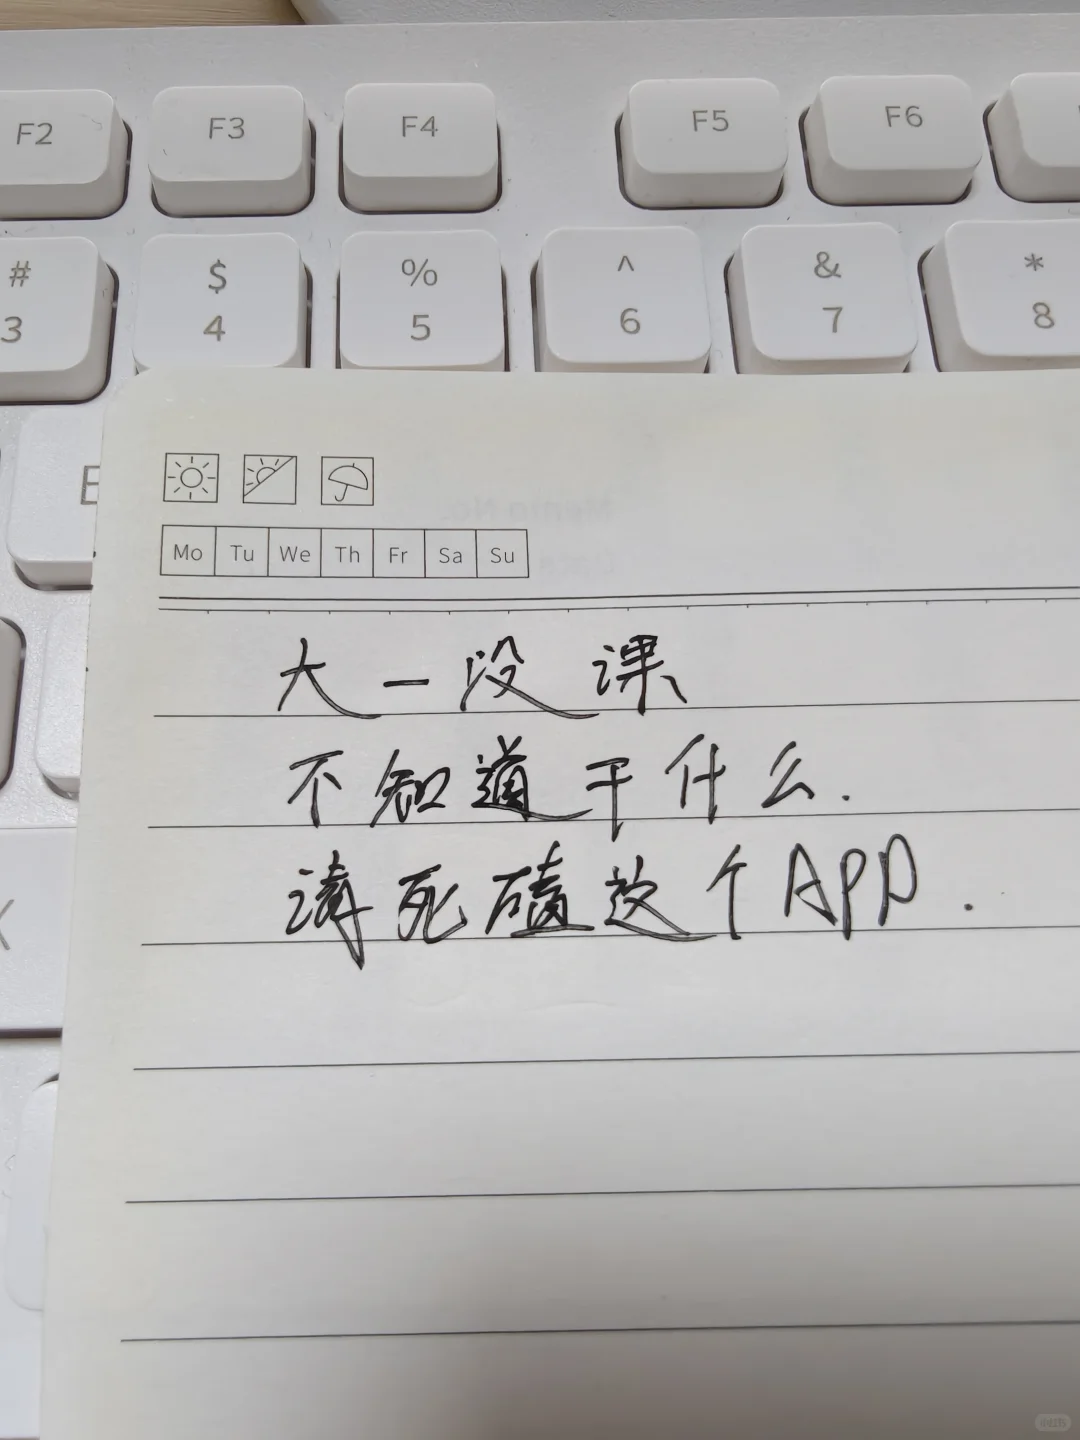 F2 F3 F4 F5 F6
# $ % ^ & *
3 4 5 6 7 8
E
Mo Tu We Th Fr Sa Su
大一没课
不知道干什么.
请死磕这个APP.